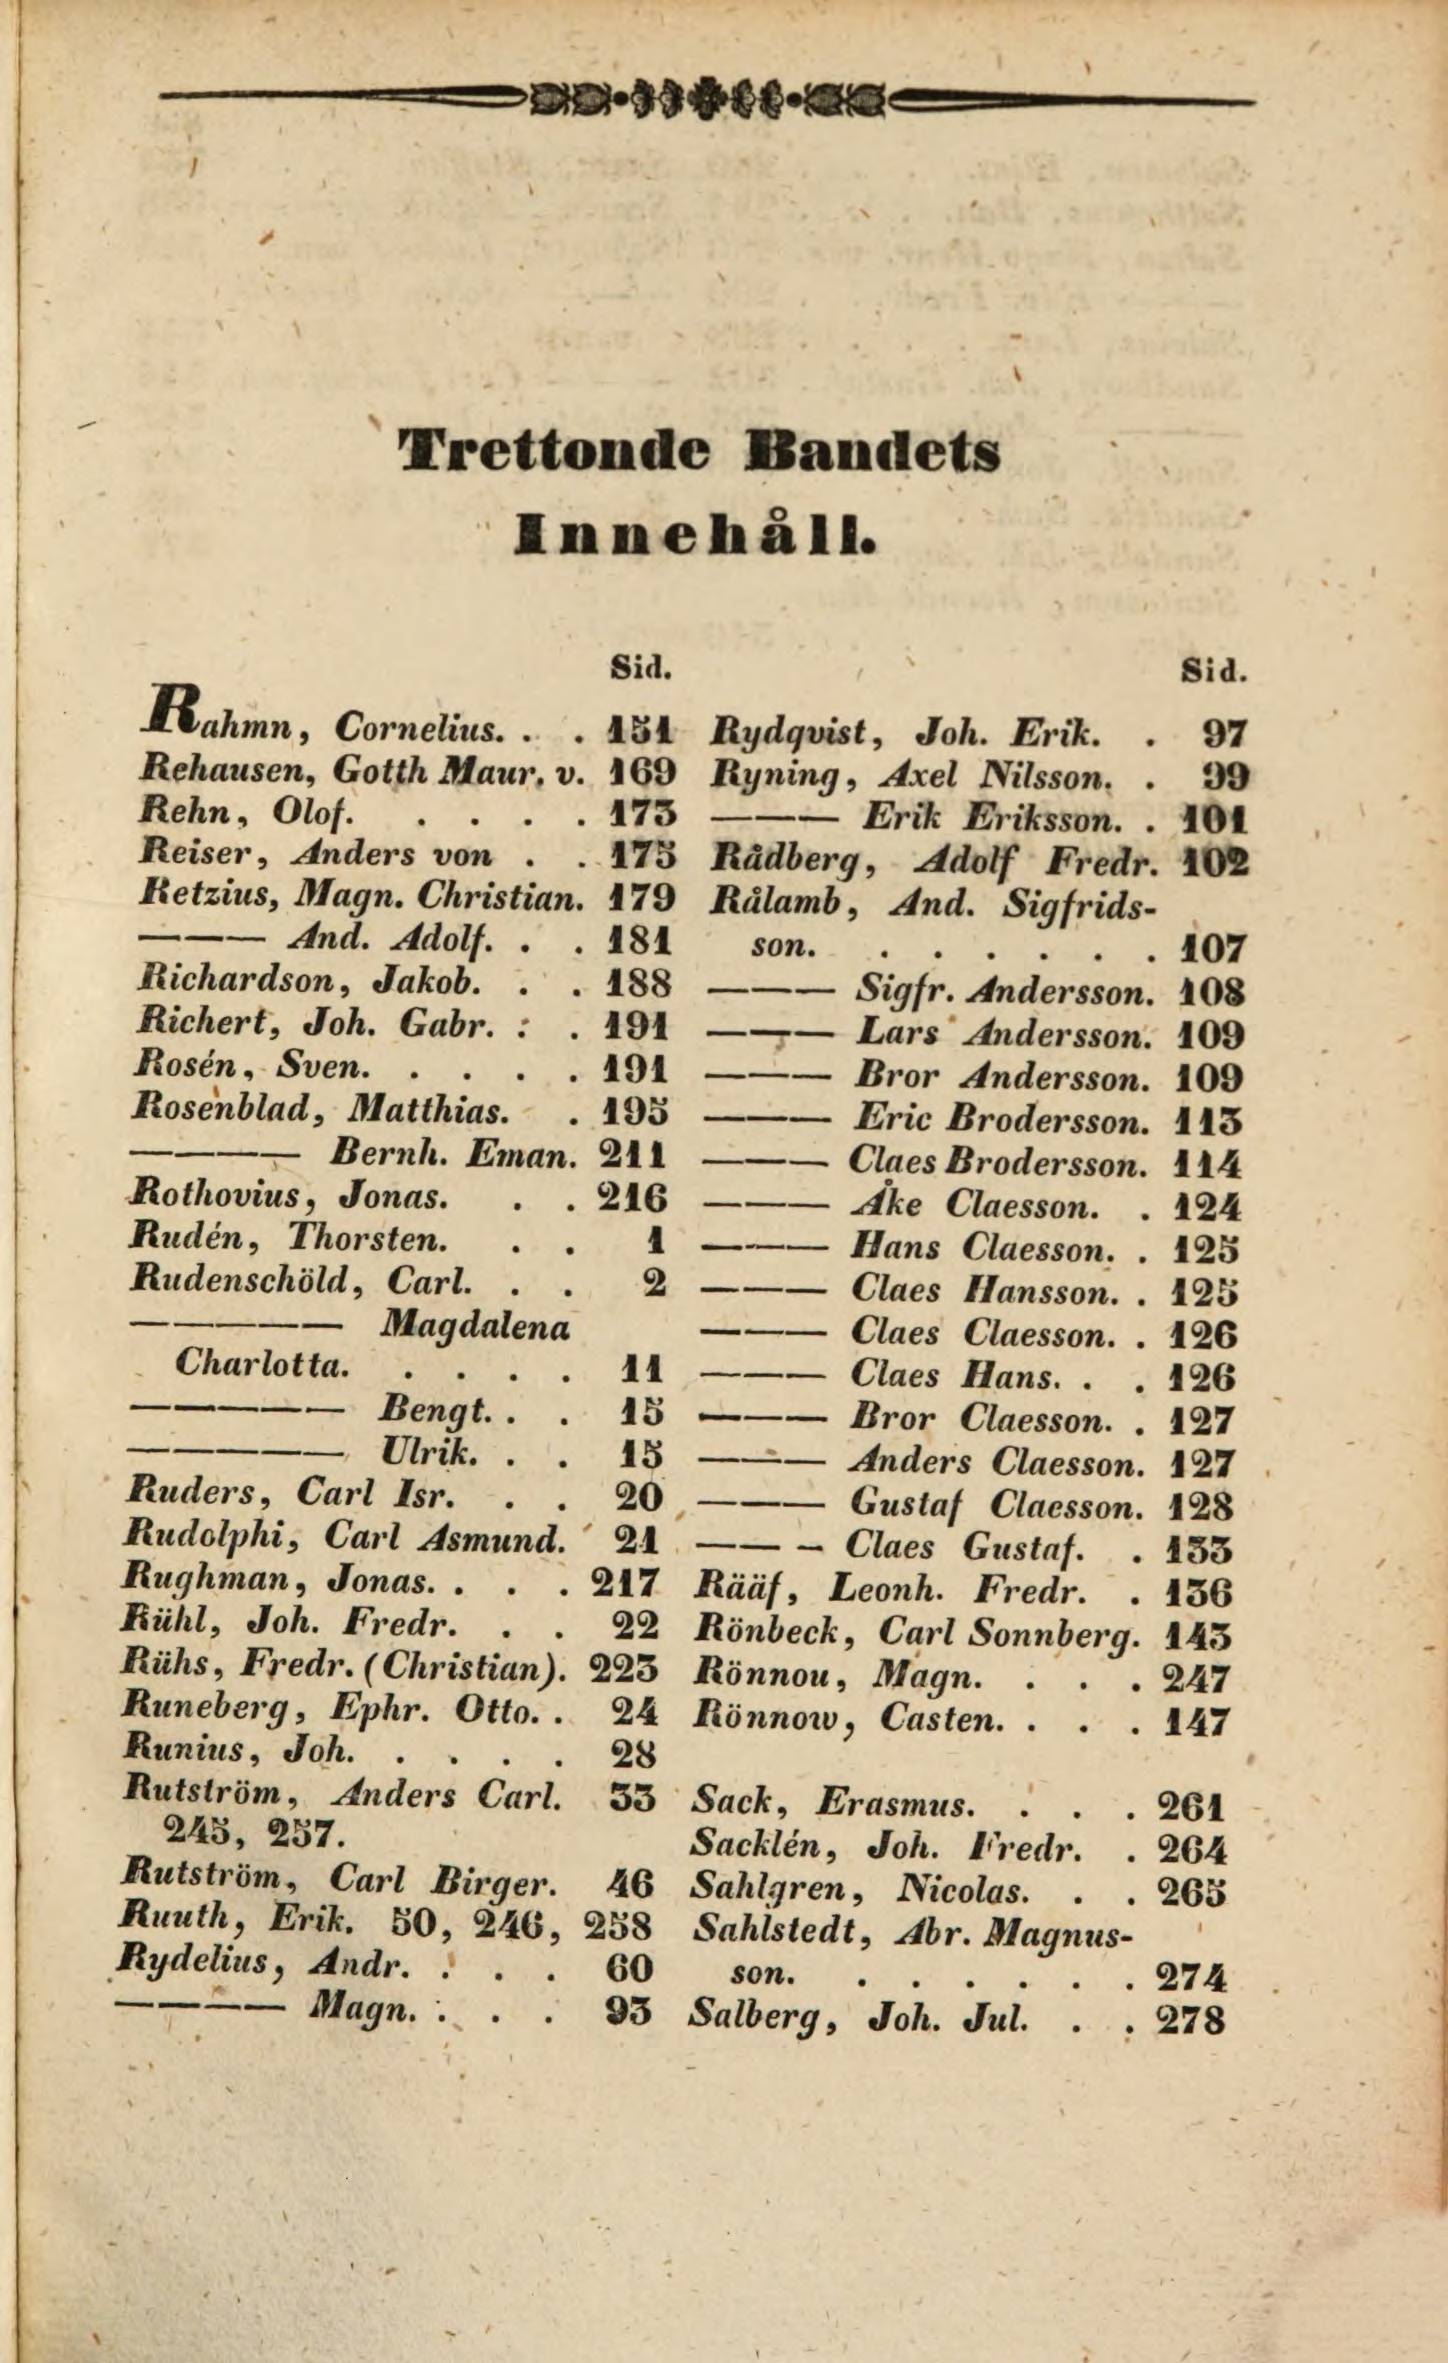 Trettonde Bandets
Innehåll.
Sid.
Rahmn, Cornelius. . . 151
Rehausen, Gotth Maur. v. 169
Rehn, Olof. . . . . 173
Reiser, Anders von . . 175
Retzius, Magn. Christian. 179
——— And. Adolf. . . 181
Richardson, Jakob. . . 188
Richert, Joh. Gabr. . . 191
Rosén, Sven. . . . . 191
Rosenblad, Matthias. . 195
———— Bernh. Eman. 211
Rothovius, Jonas. . . 216
Rudén, Thorsten. . . 1
Rudenschöld, Carl. . . 2
————— Magdalena
Charlotta. . . . . 11
————— Bengt. . . 15
————— Ulrik. . . 15
Ruders, Carl Isr. . . 20
Rudolphi, Carl Asmund. 21
Rughman, Jonas. . . . 217
Rühl, Joh. Fredr. . . 22
Rühs, Fredr. (Christian). 223
Runeberg, Ephr. Otto. . 24
Runius, Joh. . . . . 28
Rutström, Anders Carl. 33
245, 257.
Rutström, Carl Birger. 46
Ruuth, Erik. 50, 246, 258
Rydelius, Andr. . . . 60
———— Magn. . . . 93
Sid.
Rydqvist, Joh. Erik. . 97
Ryning, Axel Nilsson. . 99
——— Erik Eriksson. . 101
Rådberg, Adolf Fredr. 102
Rålamb, And. Sigfrids-
son. . . . . . . 107
——— Sigfr. Andersson. 108
——— Lars Andersson. 109
——— Bror Andersson. 109
——— Eric Brodersson. 113
——— Claes Brodersson. 114
——— Åke Claesson. . 124
——— Hans Claesson. . 125
——— Claes Hansson. . 125
——— Claes Claesson. . 126
——— Claes Hans. . . 126
——— Bror Claesson. . 127
——— Anders Claesson. 127
——— Gustaf Claesson. 128
——— Claes Gustaf. . 133
Rääf, Leonh. Fredr. . 136
Rönbeck, Carl Sonnberg. 143
Rönnou, Magn. . . . 247
Rönnow, Casten. . . . 147
Sack, Erasmus. . . . 261
Sacklén, Joh. Fredr. . 264
Sahlgren, Nicolas. . . 265
Sahlstedt, Abr. Magnus-
son. . . . . . . 274
Salberg, Joh. Jul. . . 278